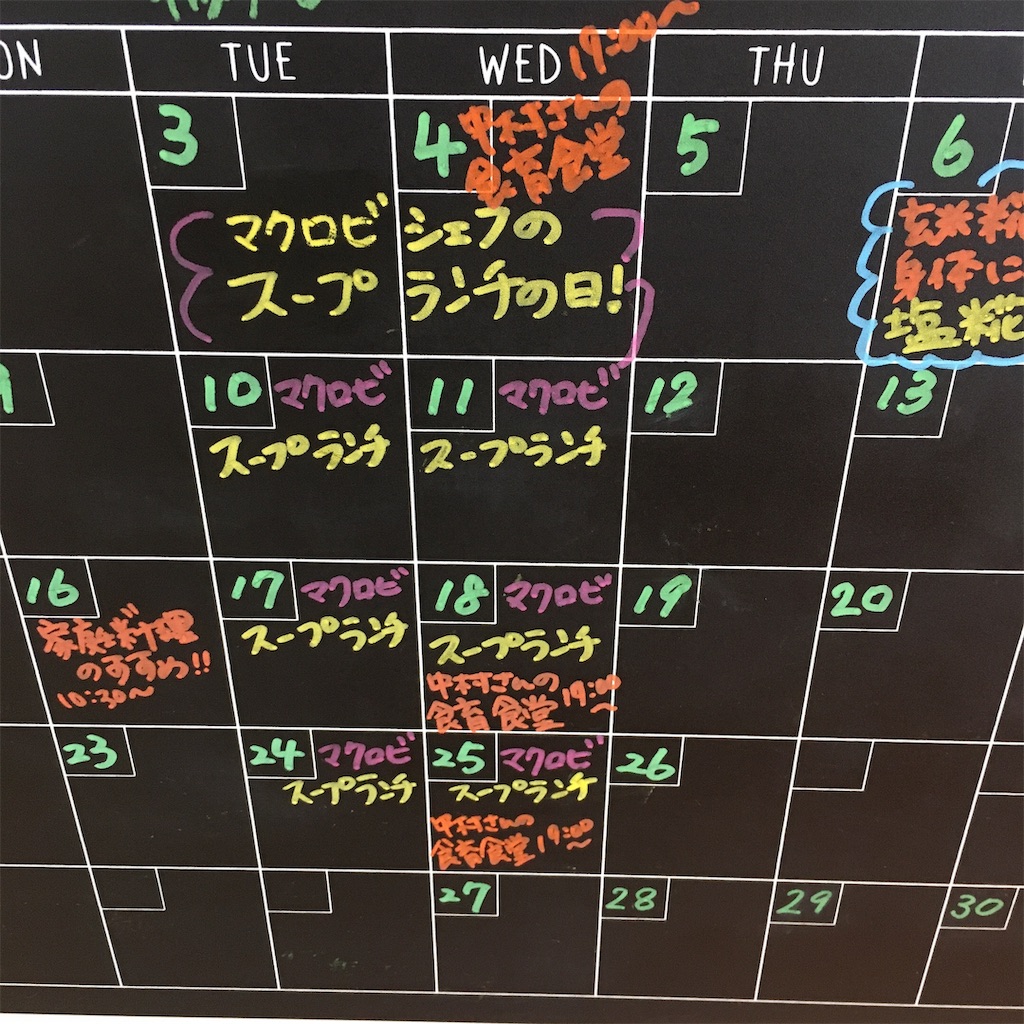 ON TUE WED THU
19:00〜
3 4 5 6
中村さんの
食育食堂
マクロビシェフの
スープランチの日!
玄米糀
身体に
塩糀
9 10 マクロビ 11 マクロビ 12 13
スープランチ スープランチ
16 17 マクロビ 18 マクロビ 19 20
家庭料理
のすすめ!!
10:30〜
スープランチ スープランチ
中村さんの
食育食堂 19:00〜
23 24 マクロビ 25 マクロビ 26
スープランチ スープランチ
中村さんの
食育食堂 19:00〜
27 28 29 30